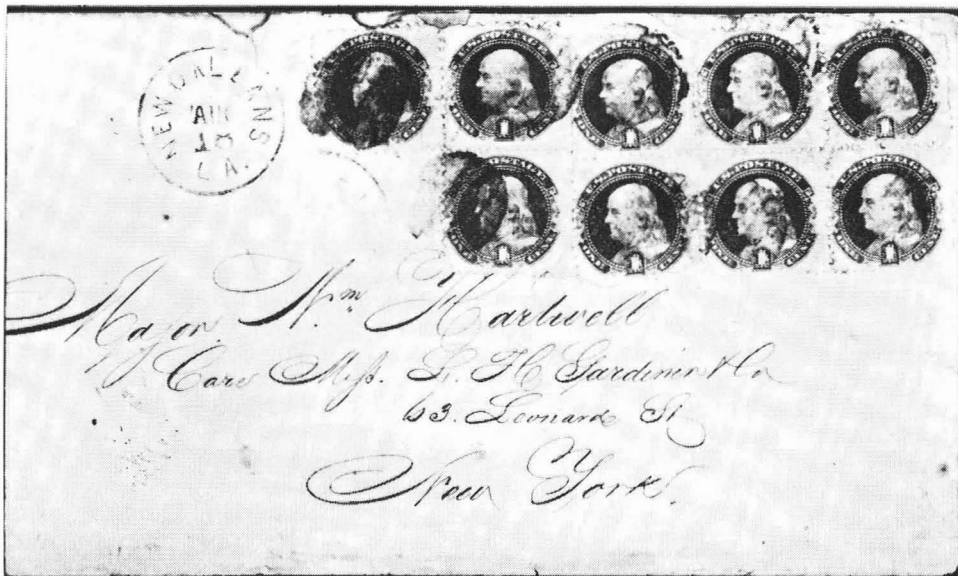 NEW ORLEANS
AUG
18
LA.
U.S. POSTAGE
ONE 1 CENT
Major Wm Hartwell
Care Mess. R. H. Gardiner & Co
63. Leonard St
New York